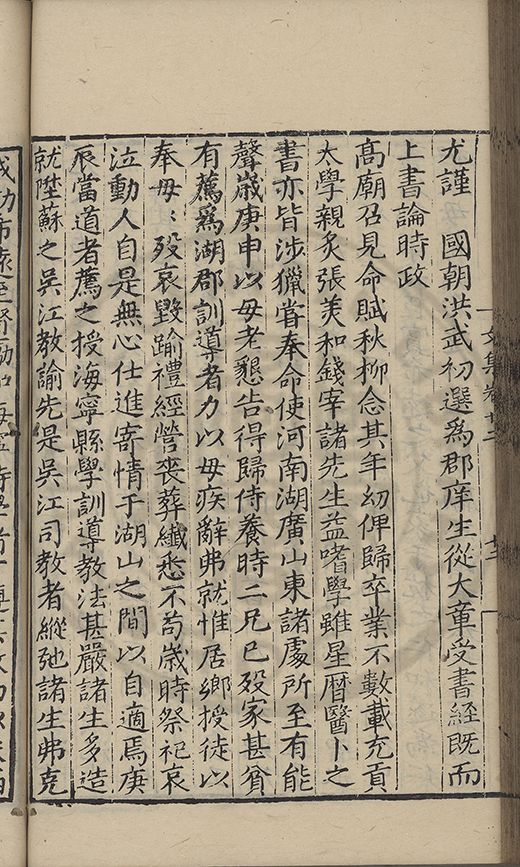 尤謹　國朝洪武初選為郡庠生從大章受書經既而
上書論時政
高廟召見命賦秋柳念其年幼俾歸卒業不數載充貢
太學親炙張美和錢宰諸先生益嗜學雖星曆醫卜之
書亦皆涉獵嘗奉命使河南湖廣山東諸處所至有能
聲歲庚申以母老懇告得歸侍養時二兄已歿家甚貧
有薦為湖郡訓導者力以母疾辭弗就惟居鄉授徒以
奉母〻歿哀毀踰禮經營喪葬纖悉不苟歲時祭祀哀
泣動人自是無心仕進寄情于湖山之間以自適焉庚
辰當道者薦之授海寧縣學訓導教法甚嚴諸生多造
就陞蘇之吳江教諭先是吳江司教者縱弛諸生弗克